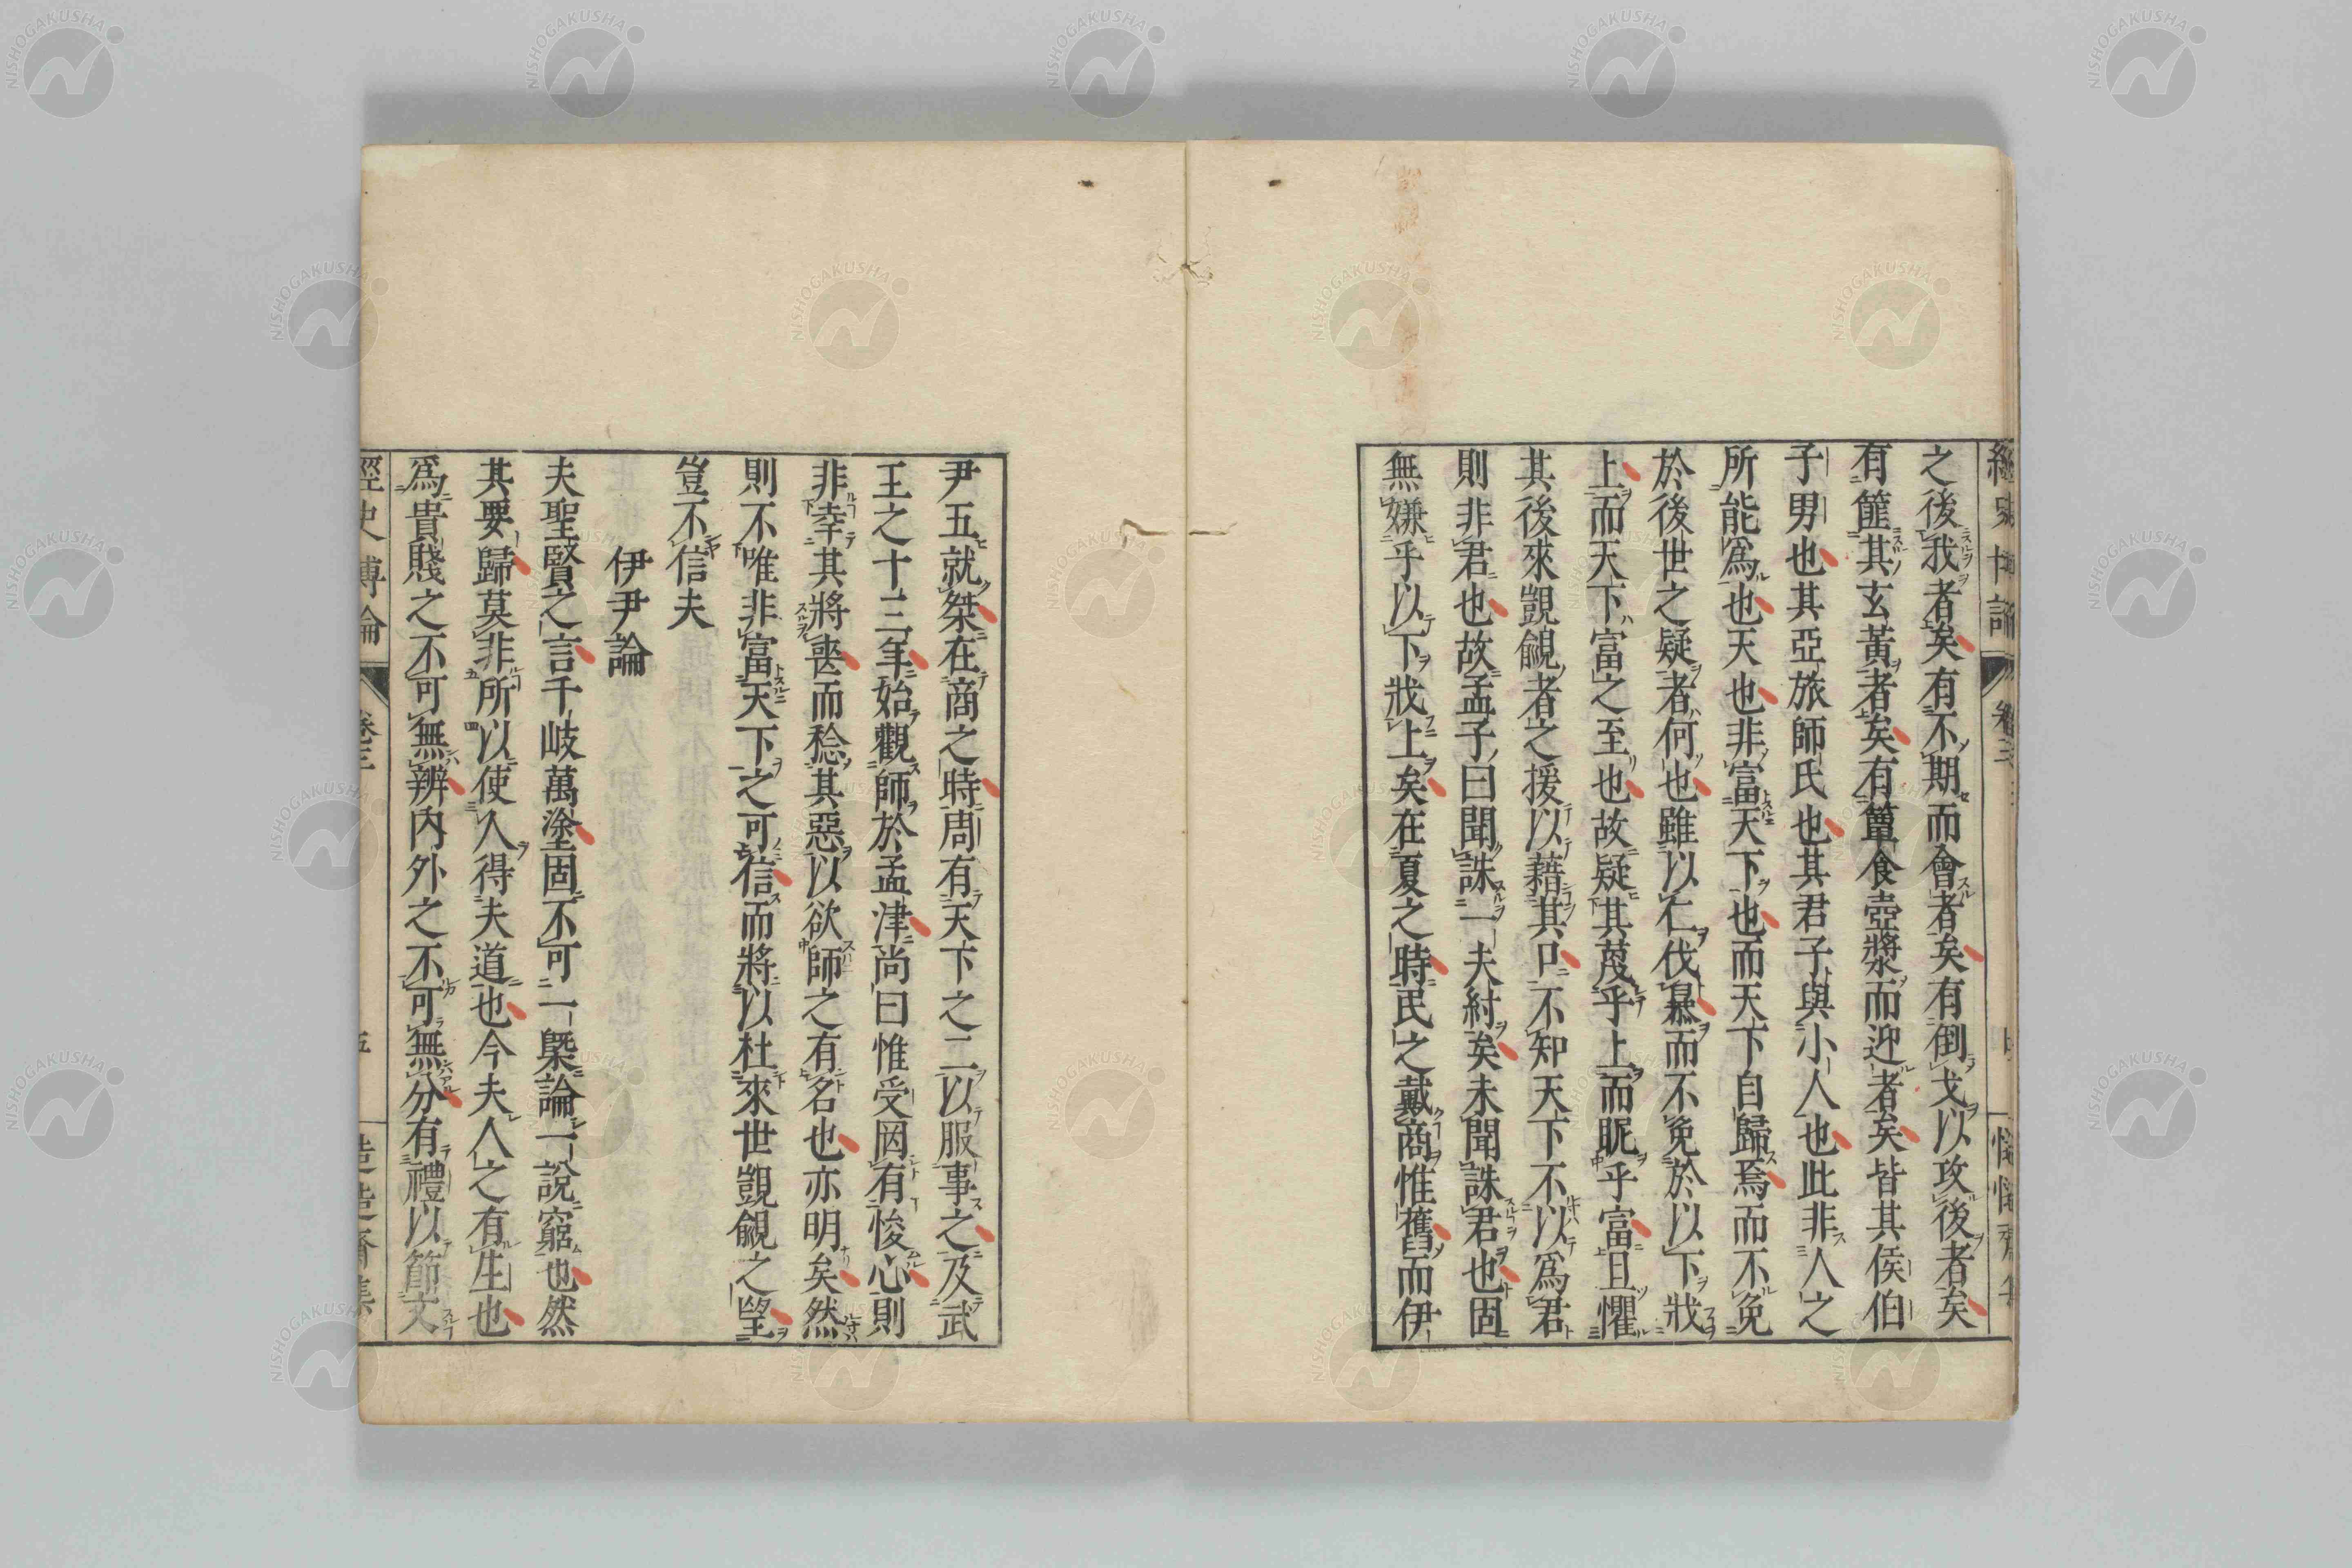 之後我者矣有不期而會者矣有倒戈以攻後者矣
有篚其玄黃者矣有簞食壺漿而迎者矣皆其侯伯
子男也其亞旅師氏也其君子與小人也此非人之
所能爲也天也非富天下也而天下自歸焉而不免
於後世之疑者何也雖以仁伐暴而不免於以下戕
上而天下富之至也故疑其蔑乎上而眤乎富且懼
其後來覬覦者之援以藉其口不知天下不以爲君
則非君也故孟子曰聞誅一夫紂矣未聞誅君也固
無嫌乎以下戕上矣在夏之時民之戴商惟舊而伊
尹五就桀在商之時周有天下之二以服事之及武
王之十三年始觀師於孟津尚曰惟受罔有悛心則
非幸其將喪而稔其惡以欲師之有名也亦明矣然
則不唯非富天下之可信而將以杜來世覬覦之望
豈不信夫
伊尹論
夫聖賢之言千岐萬塗固不可一槩論一說窮也然
其要歸莫非所以使人得夫道也今夫人之有生也
爲貴賤之不可無辨內外之不可無分有禮以節文
經史博論
卷三
五